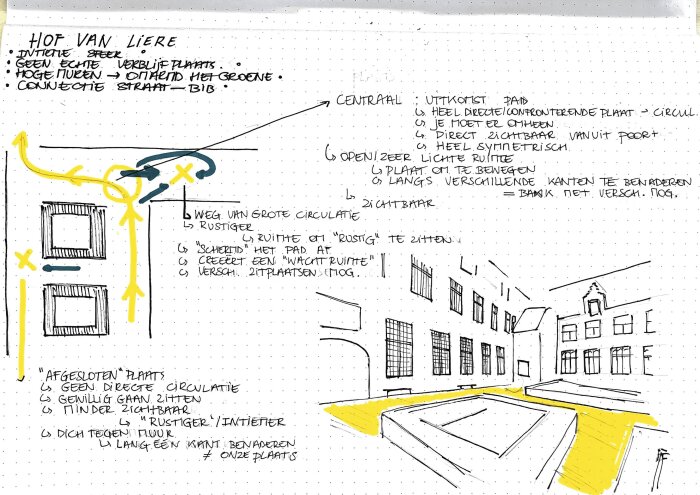 HOF VAN LIERE
• INTIEME SFEER •
• GEEN ECHTE VERBLIJFPLAATS. •
• HOGE MUREN → OMARMD HET GROENE •
• CONNECTIE STRAAT — BIB •
CENTRAAL : UITKOMST PAD
↳ HEEL DIRECTE/CONFRONTERENDE PLAAT → CIRCUL.
↳ JE MOET ER OMHEEN
↳ DIRECT ZICHTBAAR VANUIT POORT
↳ HEEL SYMMETRISCH
↳ OPEN/ZEER LICHTE RUIMTE
↳ PLAAT OM TE BEWEGEN
↳ LANGS VERSCHILLENDE KANTEN TE BENADEREN
= BANK MET VERSCH. MOG.
↳ ZICHTBAAR
↳ WEG VAN GROTE CIRCULATIE
↳ RUSTIGER
↳ RUIMTE OM "RUSTIG" TE ZITTEN
↳ "SCHERMD" HET PAD AF
↳ CREËERT EEN "WACHTRUIMTE"
↳ VERSCH. ZITPLAATSEN MOG.
"AFGESLOTEN" PLAATS
↳ GEEN DIRECTE CIRCULATIE
↳ GEWILLIG GAAN ZITTEN
↳ MINDER ZICHTBAAR
↳ "RUSTIGER"/INTIEMER
↳ DICH TEGEN MUUR
↳ LANG ÉÉN KANT BENADEREN
≠ ONZE PLAATS